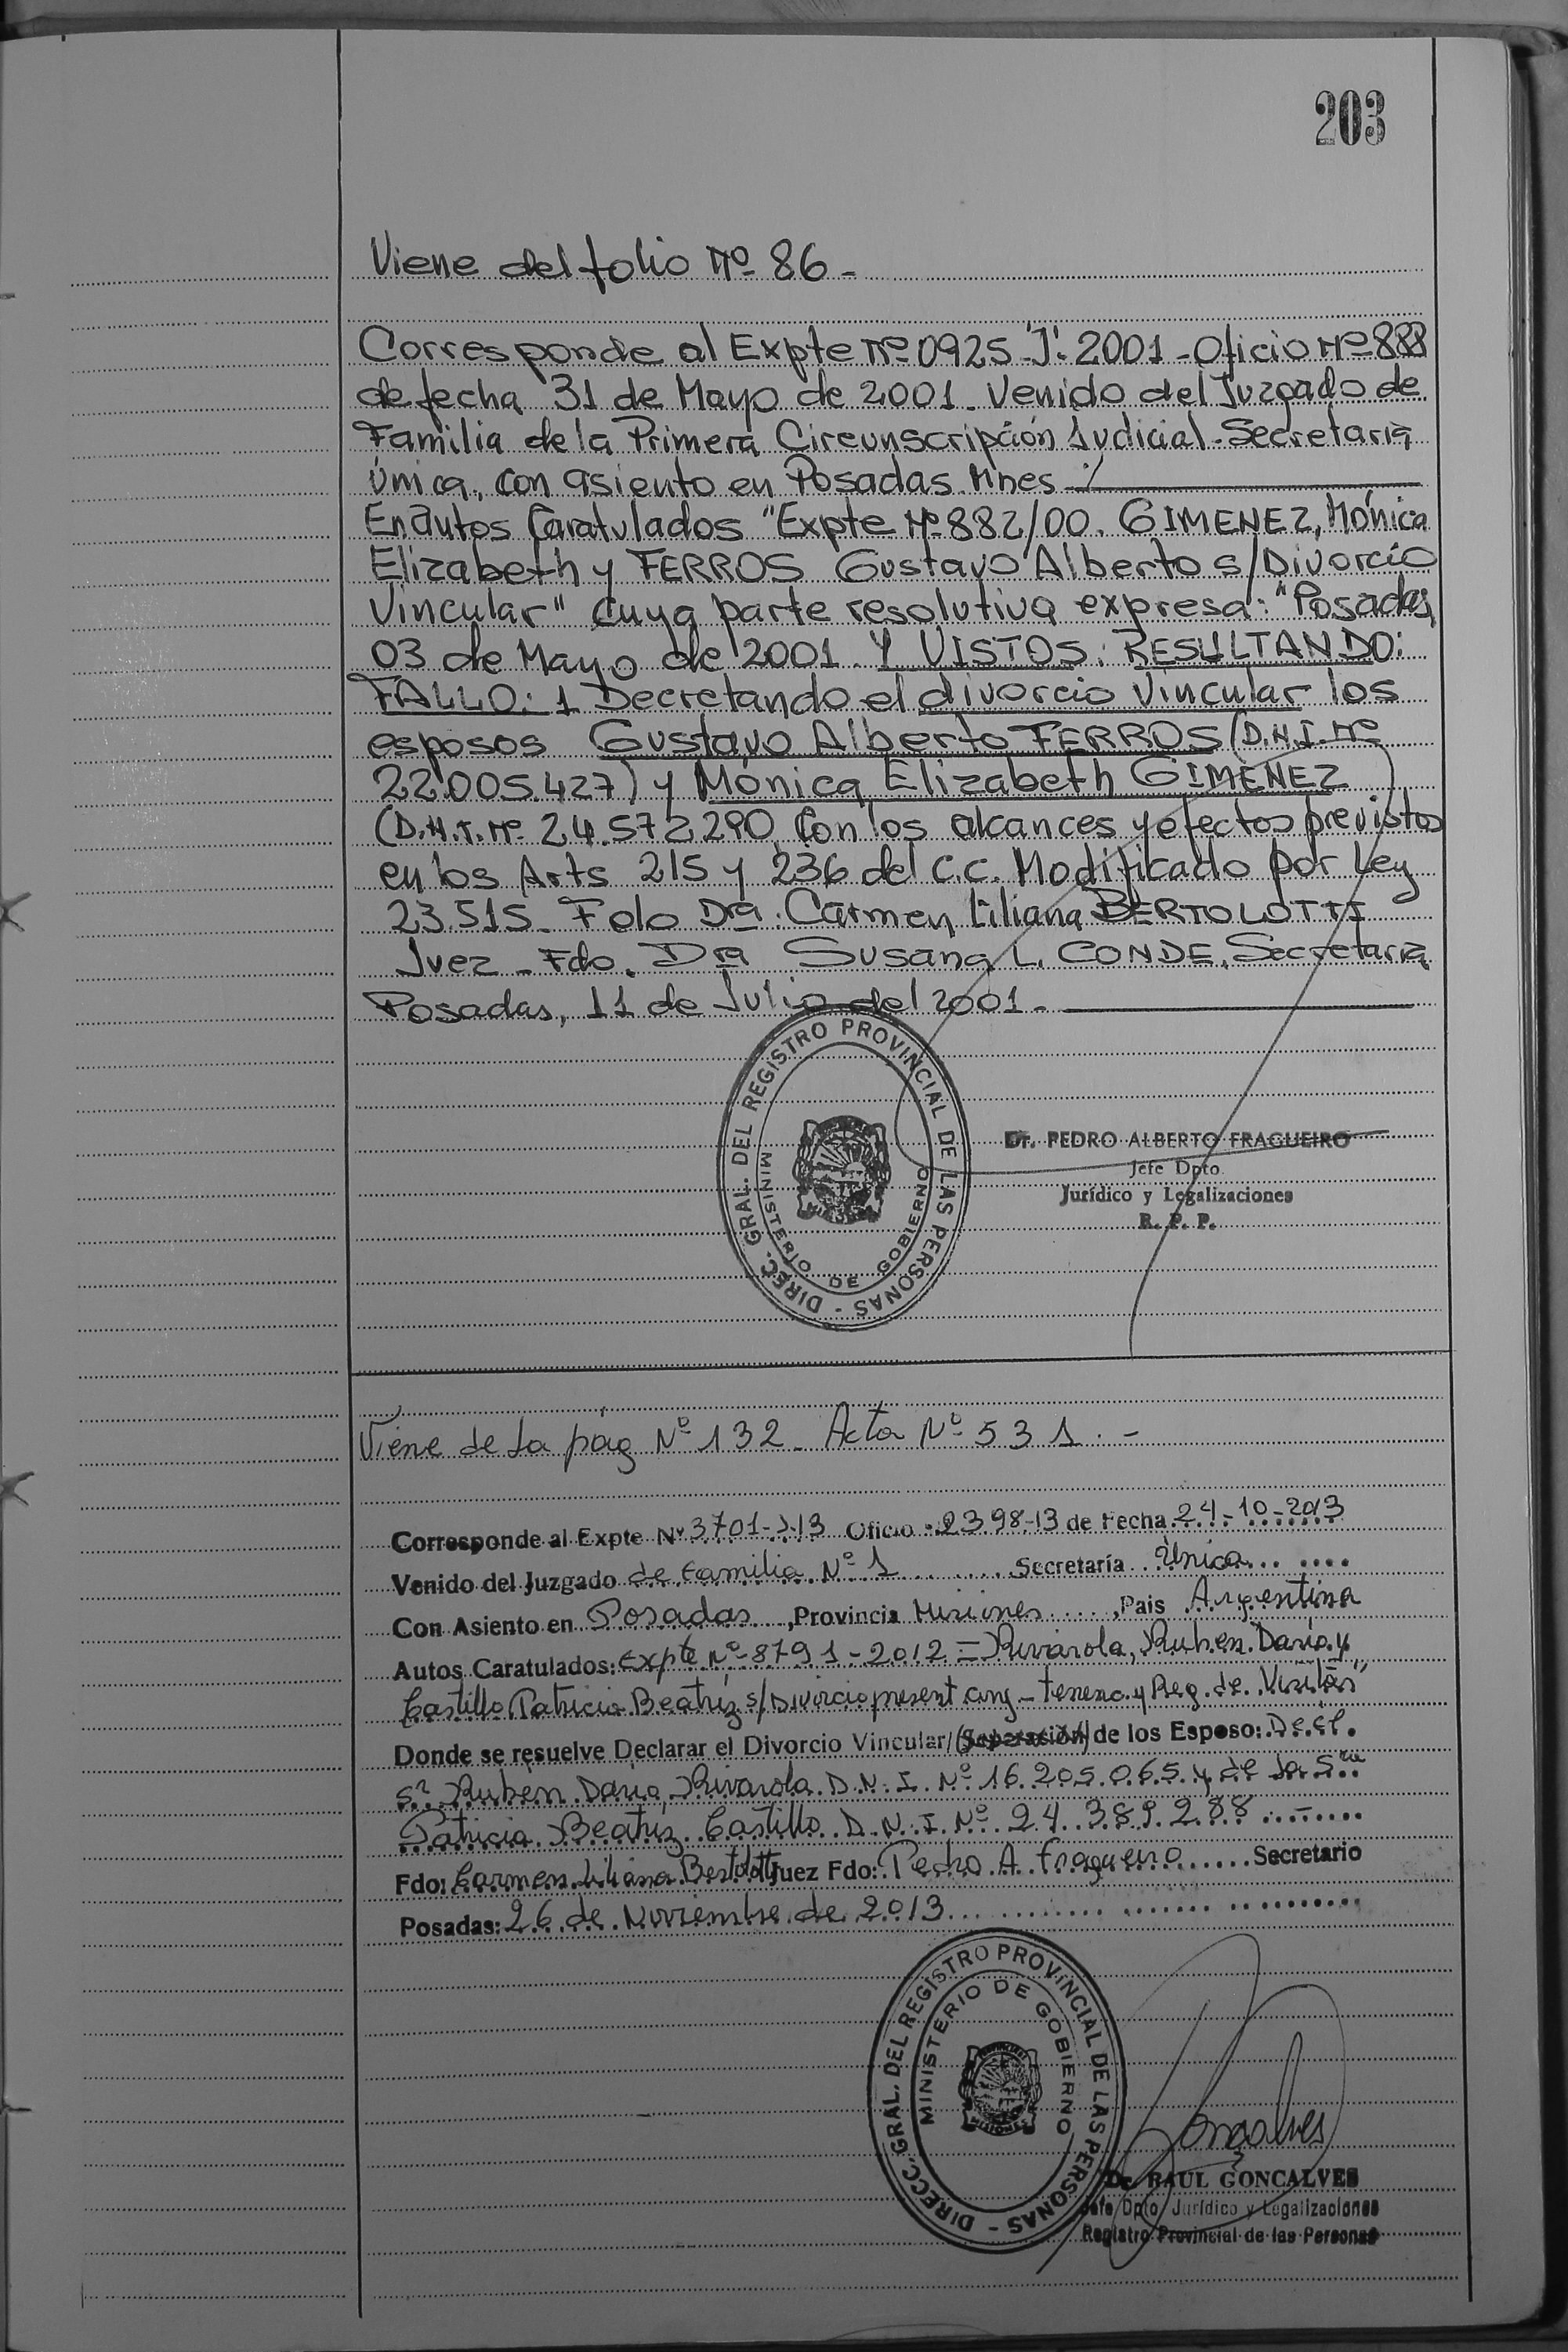 203
Viene del folio Nº 86 -
Corresponde al Expte Nº 0925 "J". 2001 - Oficio Nº 888
de fecha 31 de Mayo de 2001 - Venido del Juzgado de
Familia de la Primera Circunscripción Judicial - Secretaria
única, con asiento en Posadas. Mnes :/
En autos Caratulados "Expte Nº 882/00. GIMENEZ, Mónica
Elizabeth y FERROS Gustavo Alberto s/Divorcio
Vincular" cuya parte resolutiva expresa: "Posadas,
03 de Mayo de 2001. Y VISTOS: RESULTANDO:
FALLO: 1 Decretando el divorcio vincular los
esposos Gustavo Alberto FERROS (D.N.I. Nº
22.005.427) y Mónica Elizabeth GIMENEZ
(D.N.I. Nº 24.572.290, Con los alcances y efectos previstos
en los Arts 215 y 236 del C.C. Modificado por Ley
23.515 - Fdo Dra. Carmen Liliana BERTOLOTTI
Juez - Fdo. Dra Susana L. CONDE. Secretaria
Posadas, 11 de Julio del 2001 -
DIREC. GRAL. DEL REGISTRO PROVINCIAL DE LAS PERSONAS -
MINISTERIO DE GOBIERNO
Dr. PEDRO ALBERTO FRAGUEIRO
Jefe Dpto.
Jurídico y Legalizaciones
R. P. P.
Viene de la pág Nº 132 - Acta Nº 531. -
Corresponde al Expte Nº 3701-J-13 Oficio 2398-13 de Fecha 24-10-2013
Venido del Juzgado de Familia Nº 1 Secretaría Única
Con Asiento en Posadas, Provincia Misiones, Pais Argentina
Autos Caratulados: Expte Nº 8791-2012 = Rivarola, Ruben Dario y
Castillo Patricia Beatriz s/Divorcio present. conj - tenencia y Reg. de Visitas"
Donde se resuelve Declarar el Divorcio Vincular/(Separación) de los Esposo: Del
Sr Ruben Dario Rivarola D.N.I. Nº 16.205.065 y de la Sra
Patricia Beatriz Castillo D.N.I. Nº 24.389.288 -
Fdo: Carmen Liliana Bertolotti Juez Fdo: Pedro A. Fragueiro Secretario
Posadas: 26 de Noviembre de 2013
DIRECC. GRAL. DEL REGISTRO PROVINCIAL DE LAS PERSONAS -
MINISTERIO DE GOBIERNO
MISIONES
Goncalves
Dr. RAUL GONCALVES
Jefe Dpto Jurídico y Legalizaciones
Registro Provincial de las Personas